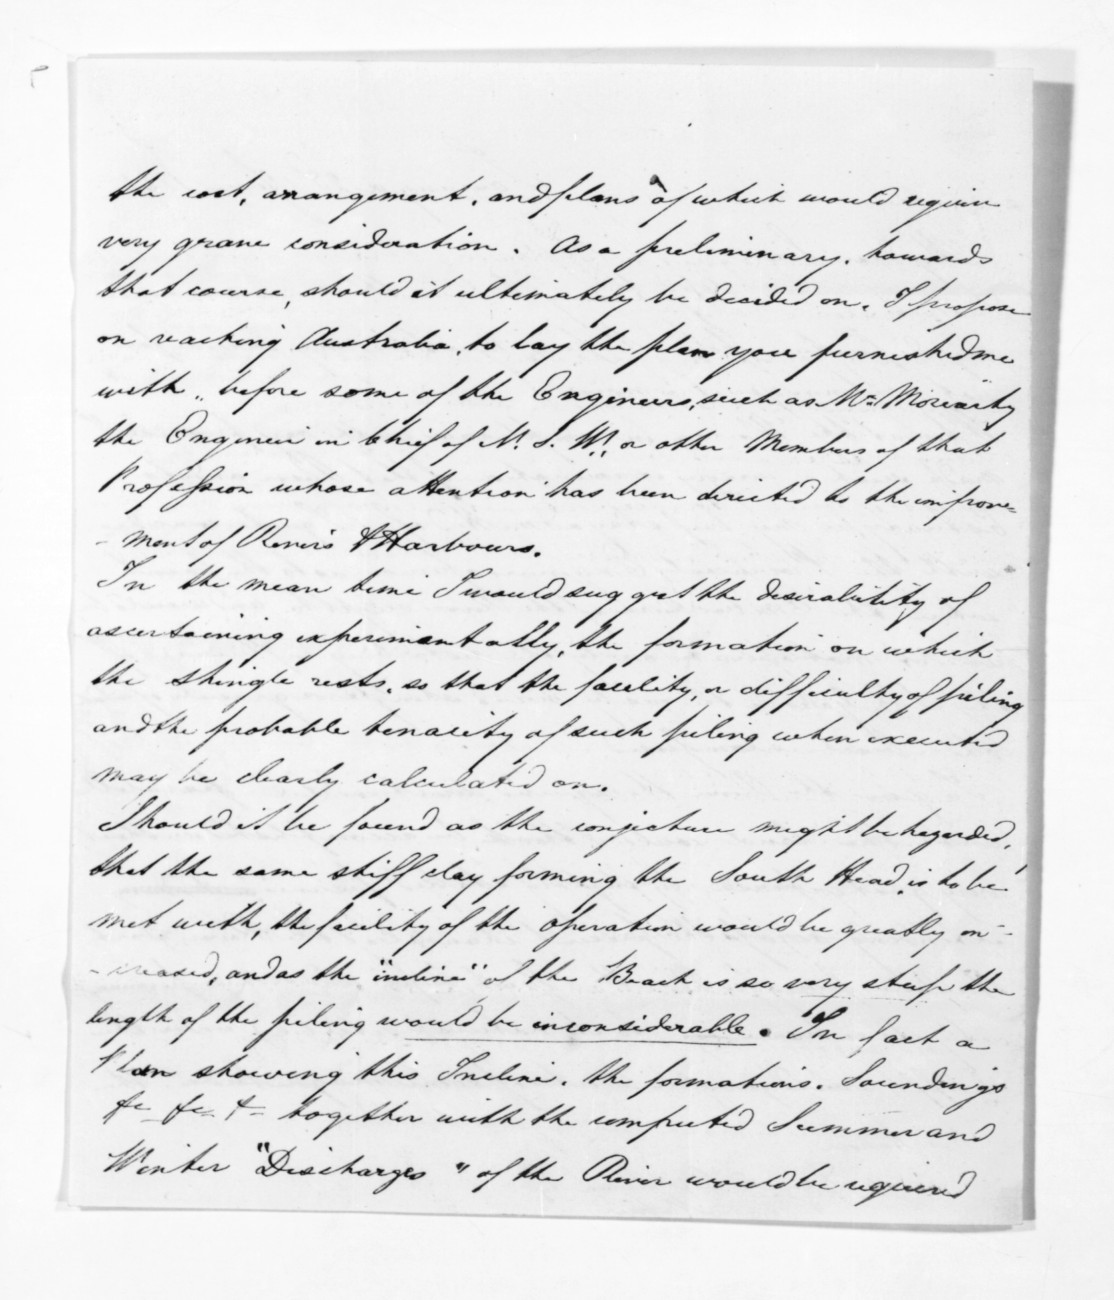 the cost, arrangement, and plans of which would require
very grave consideration. As a preliminary, towards
that course, should it ultimately be decided on, I propose
on reaching Australia, to lay the plan you furnished me
with, before some of the Engineers, such as Mr. Moriarty
the Engineer in Chief of N. S. W., or other Members of that
Profession whose attention has been directed to the improve=
-ment of Rivers & Harbours.
In the mean time I would suggest the desirability of
ascertaining experimentally, the formation on which
the shingle rests, so that the facility, or difficulty of piling
and the probable tenacity of such piling when executed
may be clearly calculated on.
Should it be found as the conjecture might be hazarded,
that the same stiff clay forming the South Head, is to be
met with, the facility of the operation would be greatly in-
-creased, and as the "incline" of the Beach is so very steep the
length of the piling would be inconsiderable. In fact a
Plan showing this Incline, the formations, Soundings
&c &c &c together with the computed Summer and
Winter "Discharges" of the River would be required